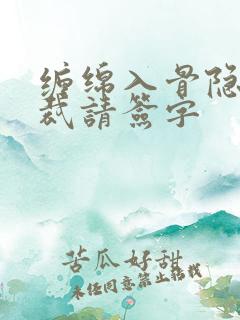 缠绵入骨隐
裁請簽字
苦瓜好甜
未经同意禁止转载